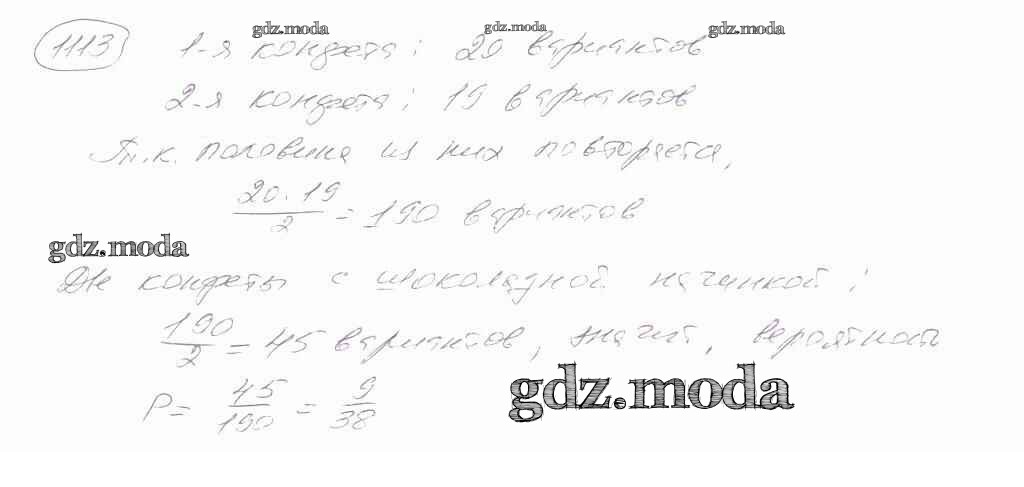 gdz.moda gdz.moda gdz.moda
1113 1-я конфета: 20 вариантов
2-я конфета: 19 вариантов
Т.к. половина из них повторяется,
20·19/2 = 190 вариантов
gdz.moda
Две конфеты с шоколадной начинкой:
190/2 = 45 вариантов, значит, вероятность
gdz.moda
P = 45/190 = 9/38